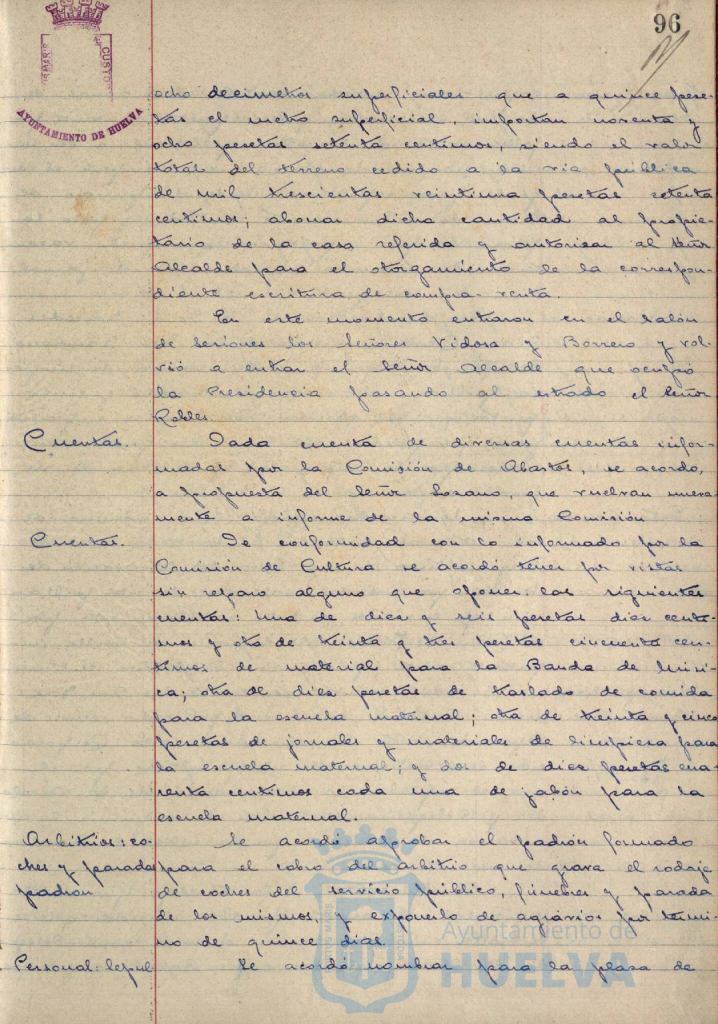 96
AYUNTAMIENTO DE HUELVA
ocho decimetros superficiales que a quince pese-
tas el metro superficial, importan noventa y
ocho pesetas setenta centimos, siendo el valor
total del terreno cedido a la via pública
de mil trescientas veintiuna pesetas setenta
centimos; abonar dicha cantidad al propie-
tario de la casa referida y autorizar al Señor
Alcalde para el otorgamiento de la correspon-
diente escritura de compra-venta.
En este momento entraron en el salón
de sesiones los Señores Vidosa y Borrero y vol-
vió a entrar el Señor Alcalde que ocupó
la Presidencia pasando al estrado el Señor
Robles.
Cuentas. Dada cuenta de diversas cuentas infor-
madas por la Comisión de Abastos, se acordo,
a propuesta del Señor Lozano, que vuelvan nueva-
mente a informe de la misma Comisión
Cuentas. De conformidad con lo informado por la
Comisión de Cultura se acordó tener por vistas
sin reparo alguno que oponer las siguientes
cuentas: Una de diez y seis pesetas diez centi-
mos y otra de treinta y tres pesetas cincuenta cen-
timos de material para la Banda de Músi-
ca; otra de diez pesetas de traslado de comida
para la escuela maternal; otra de treinta y cinco
pesetas de jornales y materiales de limpieza para
la escuela maternal; y dos de diez pesetas cua-
renta centimos cada una de jabón para la
escuela maternal.
Arbitrios: co- Se acordó aprobar el padrón formado
ches y parada para el cobro del arbitrio que grava el rodaje
padron de coches del servicio público, fúnebres y parada
de los mismos, y exponerlo de agrávios por termi-
no de quince dias.
Personal: sepul Se acordó nombrar para la plaza de
Ayuntamiento de
HUELVA